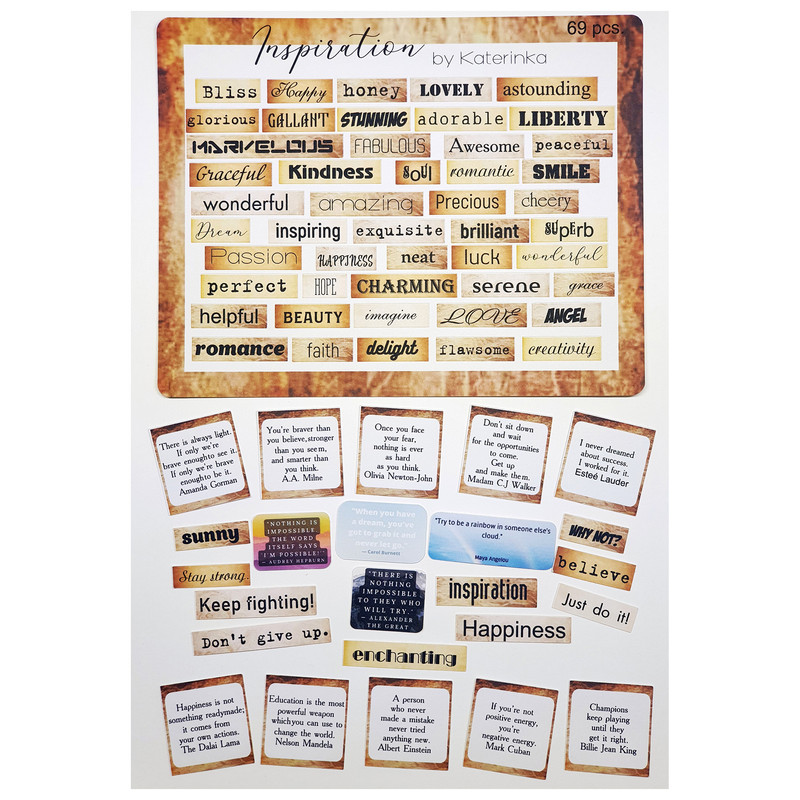 69 pcs.
Inspiration by Katerinka
Bliss Happy honey LOVELY astounding
glorious GALLANT STUNNING adorable LIBERTY
MARVELOUS FABULOUS Awesome peaceful
Graceful Kindness SOUL romantic SMILE
wonderful amazing Precious cheery
Dream inspiring exquisite brilliant SUPERb
Passion HAPPINESS neat luck wonderful
perfect HOPE CHARMING serene grace
helpful BEAUTY imagine LOVE ANGEL
romance faith delight flawsome creativity
There is always light.
If only we're
brave enough to see it.
If only we're brave
enough to be it.
Amanda Gorman
You're braver than
you believe,stronger
than you seem,
and smarter than
you think.
A.A. Milne
Once you face
your fear,
nothing is ever
as hard
as you think.
Olivia Newton-John
Don't sit down
and wait
for the opportunities
to come.
Get up
and make them.
Madam C.J Walker
I never dreamed
about success.
I worked for it.
Esteé Lauder
sunny
"NOTHING IS
IMPOSSIBLE.
THE WORD
ITSELF SAYS
I'M POSSIBLE!"
– AUDREY HEPBURN
"When you have
a dream, you've
got to grab it and
never let go."
— Carol Burnett
"Try to be a rainbow in someone else's
cloud."
Maya Angelou
WHY NOT?
Stay strong.
believe
Keep fighting!
"THERE IS
NOTHING
IMPOSSIBLE
TO THEY WHO
WILL TRY."
– ALEXANDER
THE GREAT
inspiration
Just do it!
Don't give up.
Happiness
enchanting
Happiness is not
something readymade;
it comes from
your own actions.
The Dalai Lama
Education is the most
powerful weapon
which you can use to
change the world.
Nelson Mandela
A person
who never
made a mistake
never tried
anything new.
Albert Einstein
If you're not
positive energy,
you're
negative energy.
Mark Cuban
Champions
keep playing
until they
get it right.
Billie Jean King